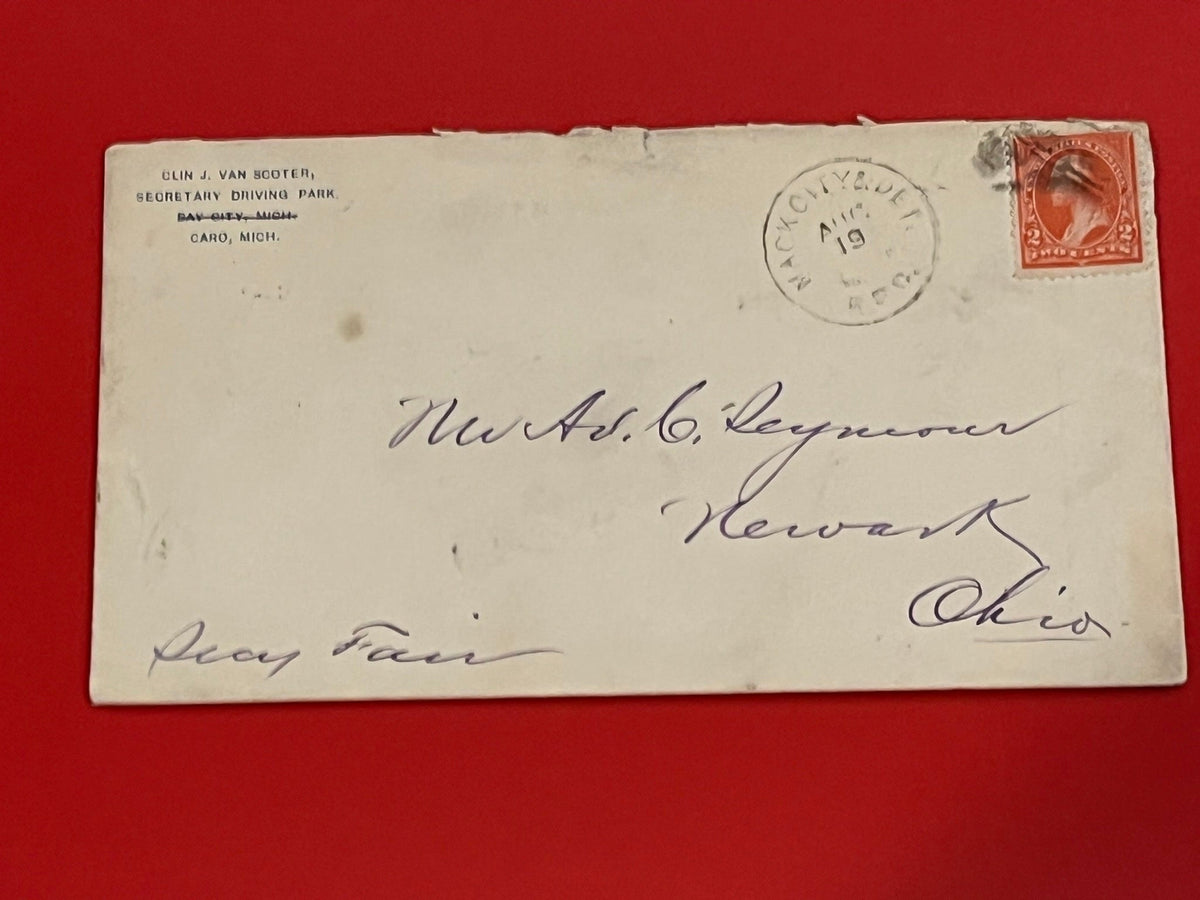 OLIN J. VAN SCOTER,
SECRETARY DRIVING PARK,
BAY CITY, MICH.
CARO, MICH.
MACK CITY & DET. R.P.O.
AUG
19
2 2
TWO CENTS
Mr Ad. C. Seymour
Newark
Ohio
Secy Fair